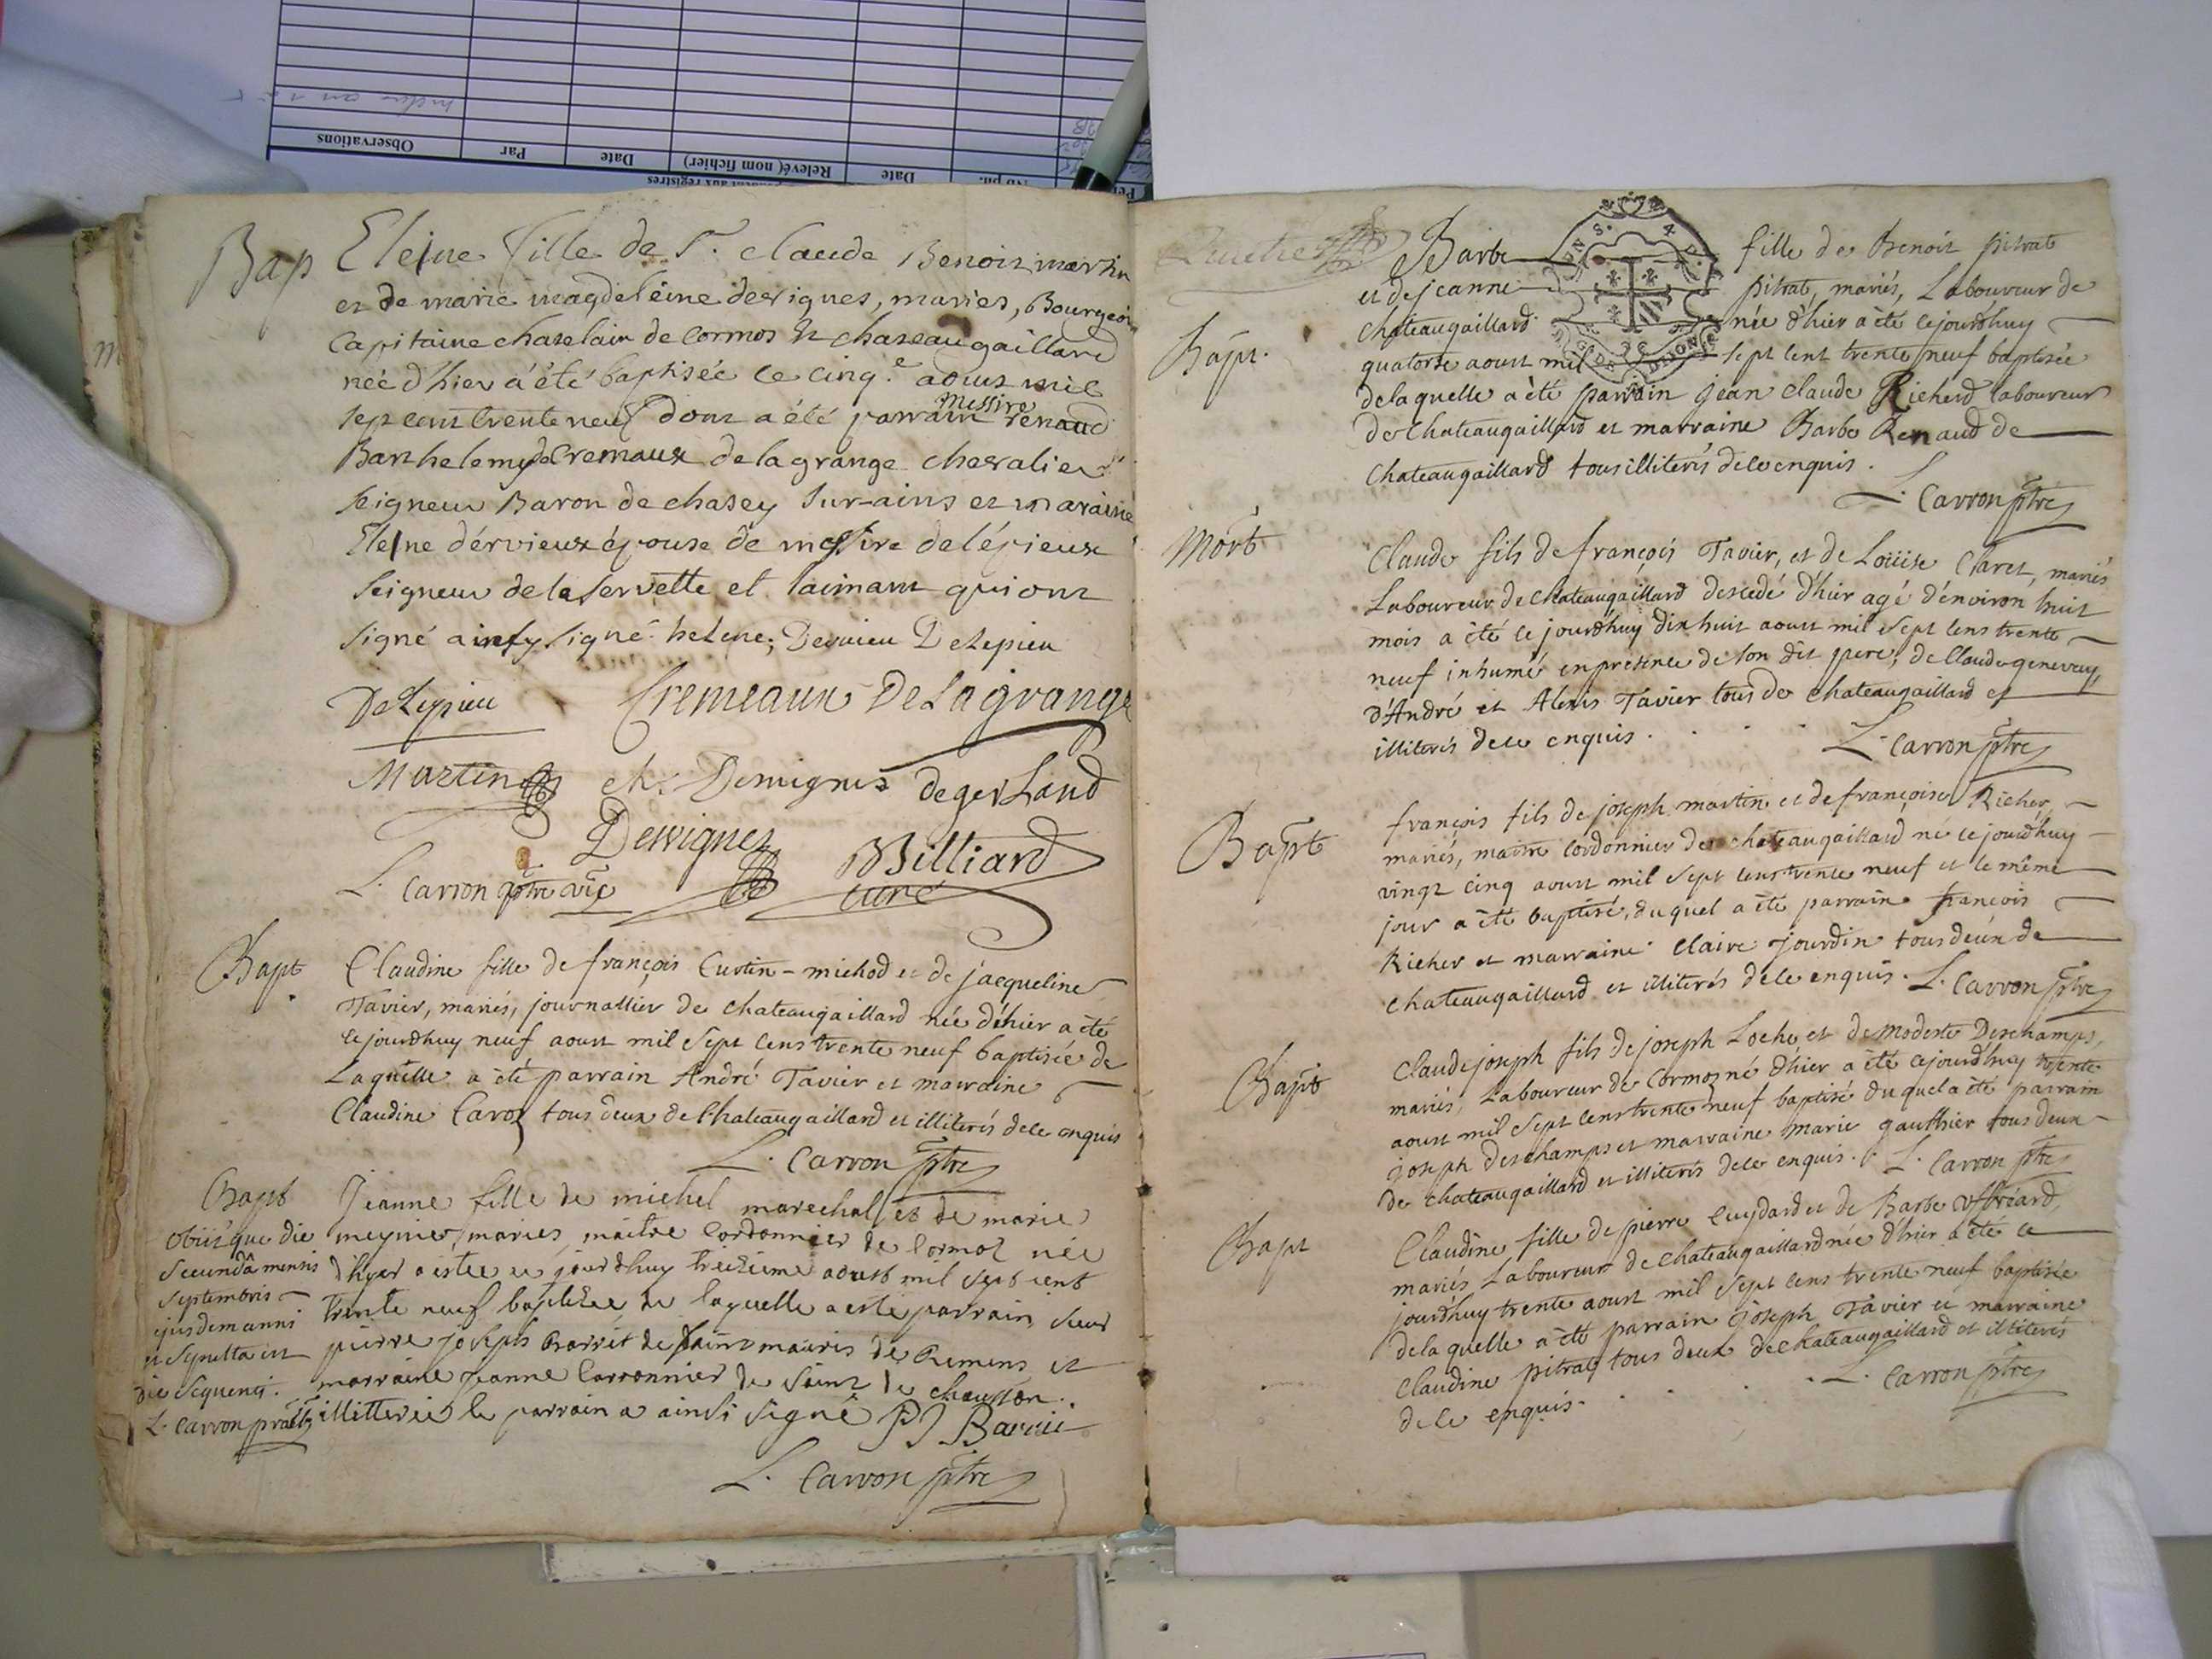 Observations
Par
Date
Relevé (nom fichier)
Date
Bap
Eleine fille de Sr. claude Benoit martin
et de marie magdeleine desvignes, mariés, Bourgeois
Capitaine chatelain de Cormos et chateaugaillard
née d'hier a été baptisée ce cinq.e aoust mil
sept cent trente neuf dont a été parrain messire renaud
Barthelemy de Cremaux de la grange chevalier
seigneur Baron de chasey sur-ains et maraine
Eleine dérvieux épouse de messire delépieux
seigneur de la servette et laimant qui ont
signé ainsy signé helene, Dervieu Delepieu
Delepieu Cremeaux De Lagrange
Martin ch. Desvignes de gerland
Desvignes
L. Carron ptre vic Billiard
curé
Bapt
Claudine fille de françois Curtin-michod et de jacqueline
Tavier, mariés, journallier de chateaugaillard née d'hier a été
cejourdhuy neuf aoust mil sept cens trente neuf baptisée de
Laquelle a été parrain André Tavier et marraine
Claudine Caroz tous deux de Chateaugaillard et illiterés de ce enquis
L. Carron ptre
Bapt
obiitque die
secundâ mensis
septembris
ejusdem anni
et sepulta est
die sequenti.
L. Carron
Jeanne fille de michel marechal et de marie
meynier, mariés, maitre Cordonnier de Cormoz née
d'hyer a estee ce jourdhuy treizieme aoust mil sept cent
trente neuf baptizee de laquelle a esté parrain sieur
pierre joseph Barret de saint mauris de Remens et
marraine jeanne Carronnier de saint de chausson.
illitterée le parrain a ainsi signé PJ Barret
L. Carron ptre
Bapt.
Barbe fille de Benoit pitrat
et de jeanne pitrat, mariés, Laboureur de
chateaugaillard née d'hier a été cejourdhuy
quatorse aoust mil sept cent trente neuf baptisée
de laquelle a été parrain jean claude Richerd laboureur
de chateaugaillard et marraine Barbe Renaud de
chateaugaillard tous illiterés de ce enquis.
L. Carron ptre
Mort
Claude fils de françois Tavier, et de Loüise Claret, mariés
Laboureur de chateaugaillard descedé d'hier agé d'environ huit
mois a été ce jourdhuy dix huit aoust mil sept cens trente
neuf inhumé en présence de son dit pere, de Claude genevay,
d'André et Alexis Tavier tous de chateaugaillard et
illiterés de ce enquis.
L. Carron ptre
Bapt
françois fils de joseph martin et de françoise Richer,
mariés, maitre Cordonnier de chateaugaillard né ce jourdhuy
vingt cinq aoust mil sept cens trente neuf et le même
jour a été baptisé, duquel a été parrain françois
Richer et marraine Claire jourdin tous deux de
chateaugaillard et illiterés de ce enquis. L. Carron ptre
Bapt
Claude joseph fils de joseph Loche et de Modeste Deschamps,
mariés, Laboureur de Cormoz né d'hier a été cejourdhuy trente
aoust mil sept cens trente neuf baptisé duquel a été parrain
joseph deschamps et marraine marie gauthier tous deux
de chateaugaillard et illiterés de ce enquis. L. Carron ptre
Bapt
Claudine fille de pierre Cuydard et de Barbe
mariés Laboureur de chateaugaillard née d'hier a été ce
jourdhuy trente aoust mil sept cens trente neuf baptisée
de laquelle a été parrain joseph Tavier et marraine
Claudine pitrat tous deux de chateaugaillard et illiterés
de ce enquis.
L. Carron ptre